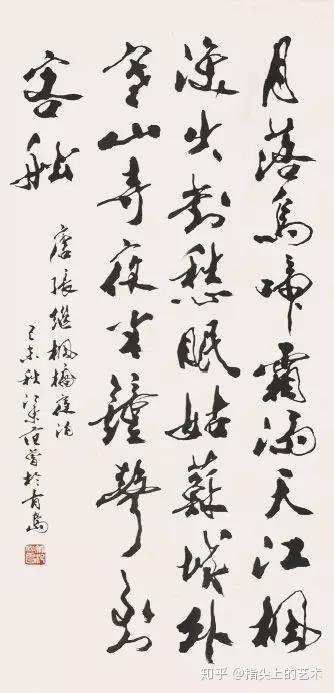 月落烏啼霜滿天江楓
漁火對愁眠姑蘇城外
寒山寺夜半鐘聲到
客船
唐張繼楓橋夜泊
己未秋江東范曾於青島
知乎 @指尖上的艺术